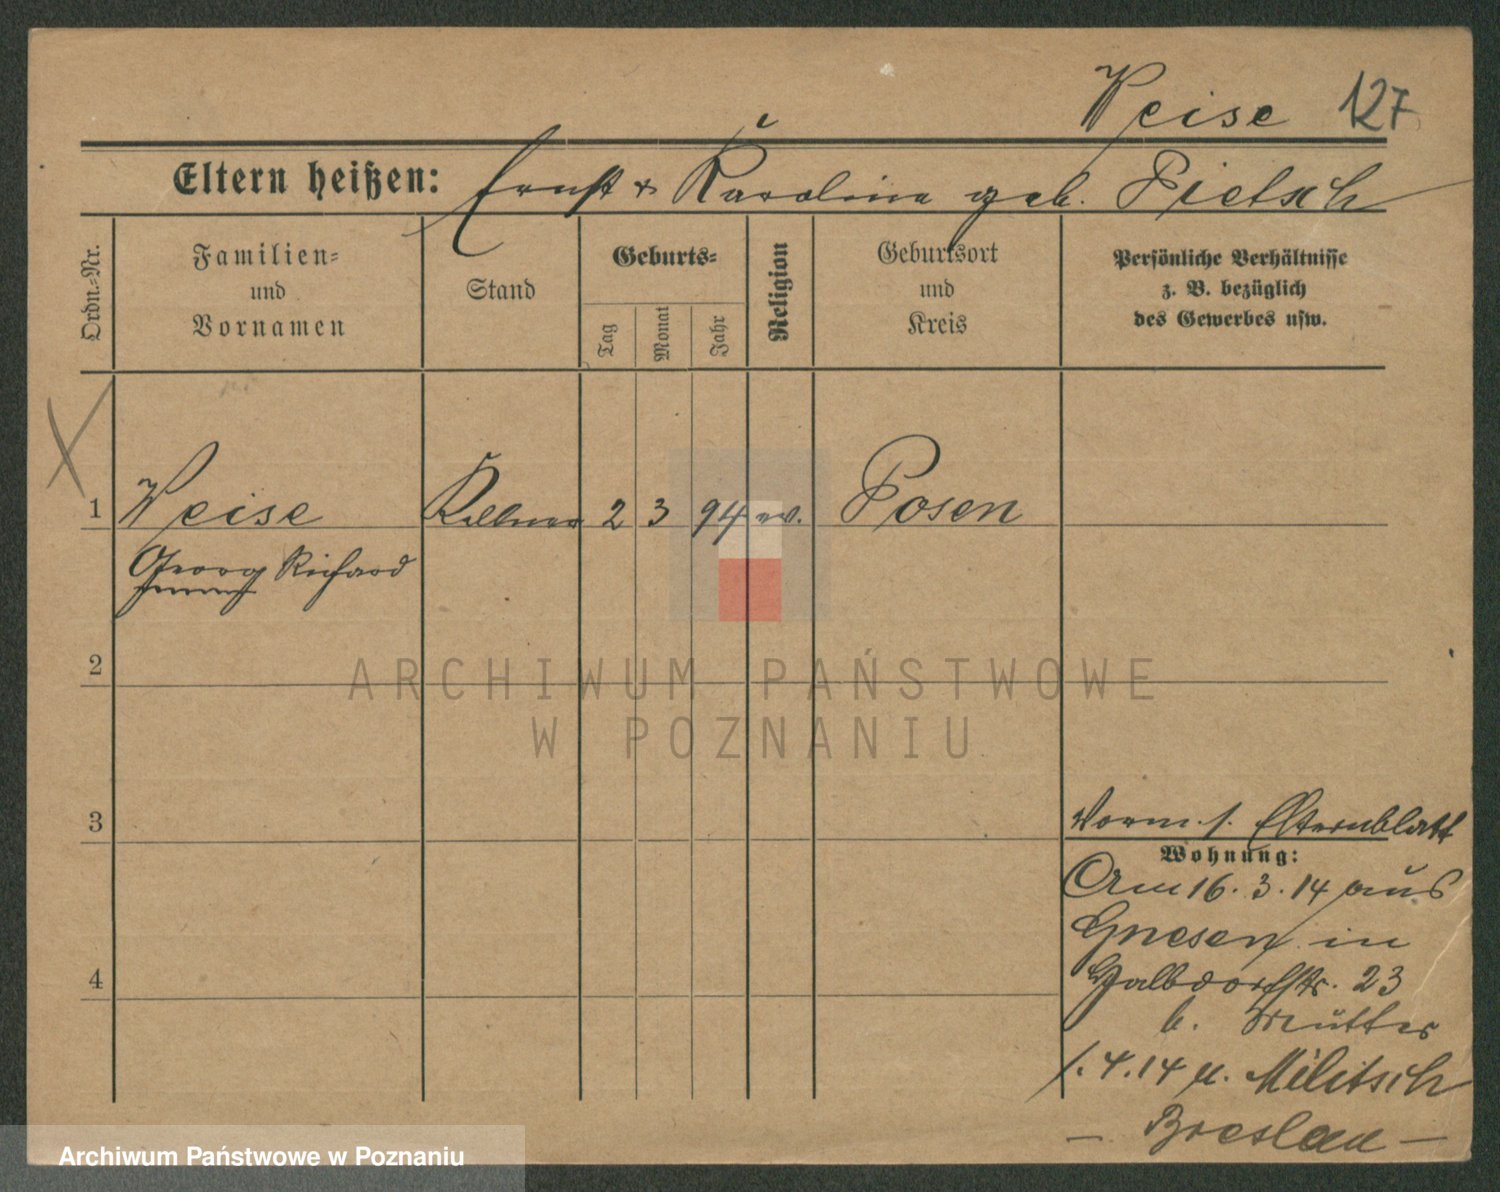 Weise 127
Eltern heißen: Ernst & Karoline geb. Pietsch
Ordn.-Nr.
Familien-
und
Vornamen
Stand
Geburts-
Tag
Monat
Jahr
Religion
Geburtsort
und
Kreis
Persönliche Verhältnisse
z. B. bezüglich
des Gewerbes usw.
1 Weise Kellner 2 3 94 ev. Posen
Georg Richard
2
3
4
Vorm. s. Elternblatt
Wohnung:
Am 16.3.14 aus
Gnesen in
Halbdorfstr. 23
b. Mutter
1.4.14 n. Militsch
— Breslau —
ARCHIWUM PAŃSTWOWE
W POZNANIU
Archiwum Państwowe w Poznaniu